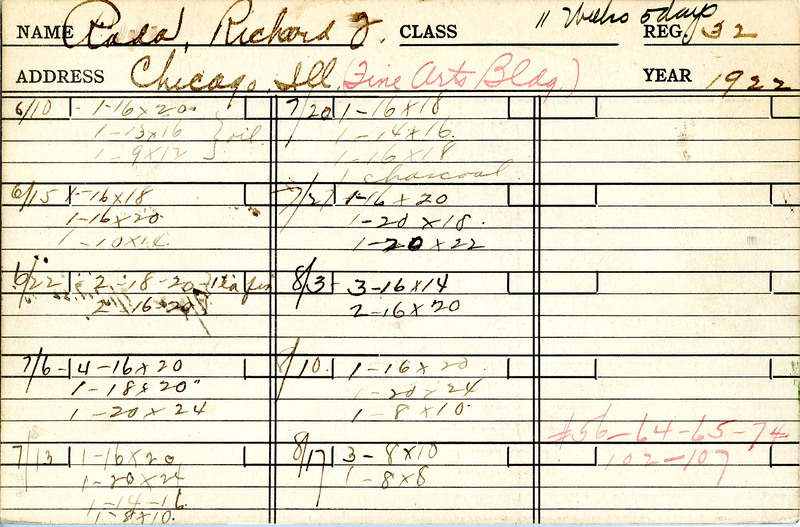 NAME Rada, Richard J. CLASS 11 Weeks 5 days REG. 32
ADDRESS Chicago, Ill. (Fine Arts Bldg) YEAR 1922
6/10 1-16x20
1-13x16 } oil
1-9x12
6/15 1-16x18
1-16x20
1-10x14
6/22 2-18-20
2-16-20
7/6- 4-16x20
1-18x20"
1-20x24
7/13 1-16x20
1-20x24
1-14-16
1-8x10.
7/20 1-16x18
1-14x16.
1-16x18
1 charcoal
7/27 1-16x20
1-20x18.
1-20x22
8/3- 3-16x14
2-16x20
8/10. 1-16x20
1-20x24
1-8x10.
8/17 3-8x10
1-8x8
#56-64-65-74
102-107